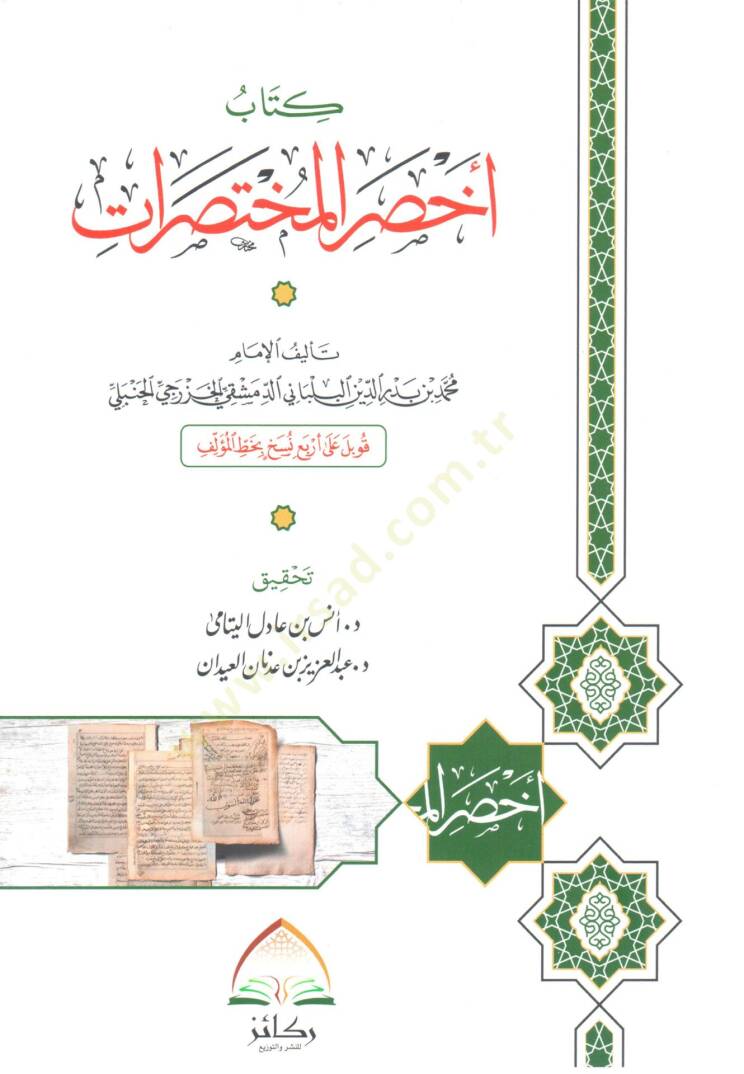 كِتَابُ
أَخْصَرِ المُخْتَصَرَاتِ
تَأليفُ الإمَامِ
مُحَمَّد بْن بَدْرِ الدِّين البَلْبَاني الدِّمَشْقِيّ الخَزْرَجِيّ الحَنْبَلِيّ
قُوبِلَ عَلَى أرْبَعِ نُسَخٍ بِخَطِّ المُؤلِّفِ
تَحْقِيق
د. أنس بن عادل اليتامى
د. عبد العزيز بن عدنان العيدان
أَخْصَرِ الم
ركائز
للنشر والتوزيع
www.irsad.com.tr